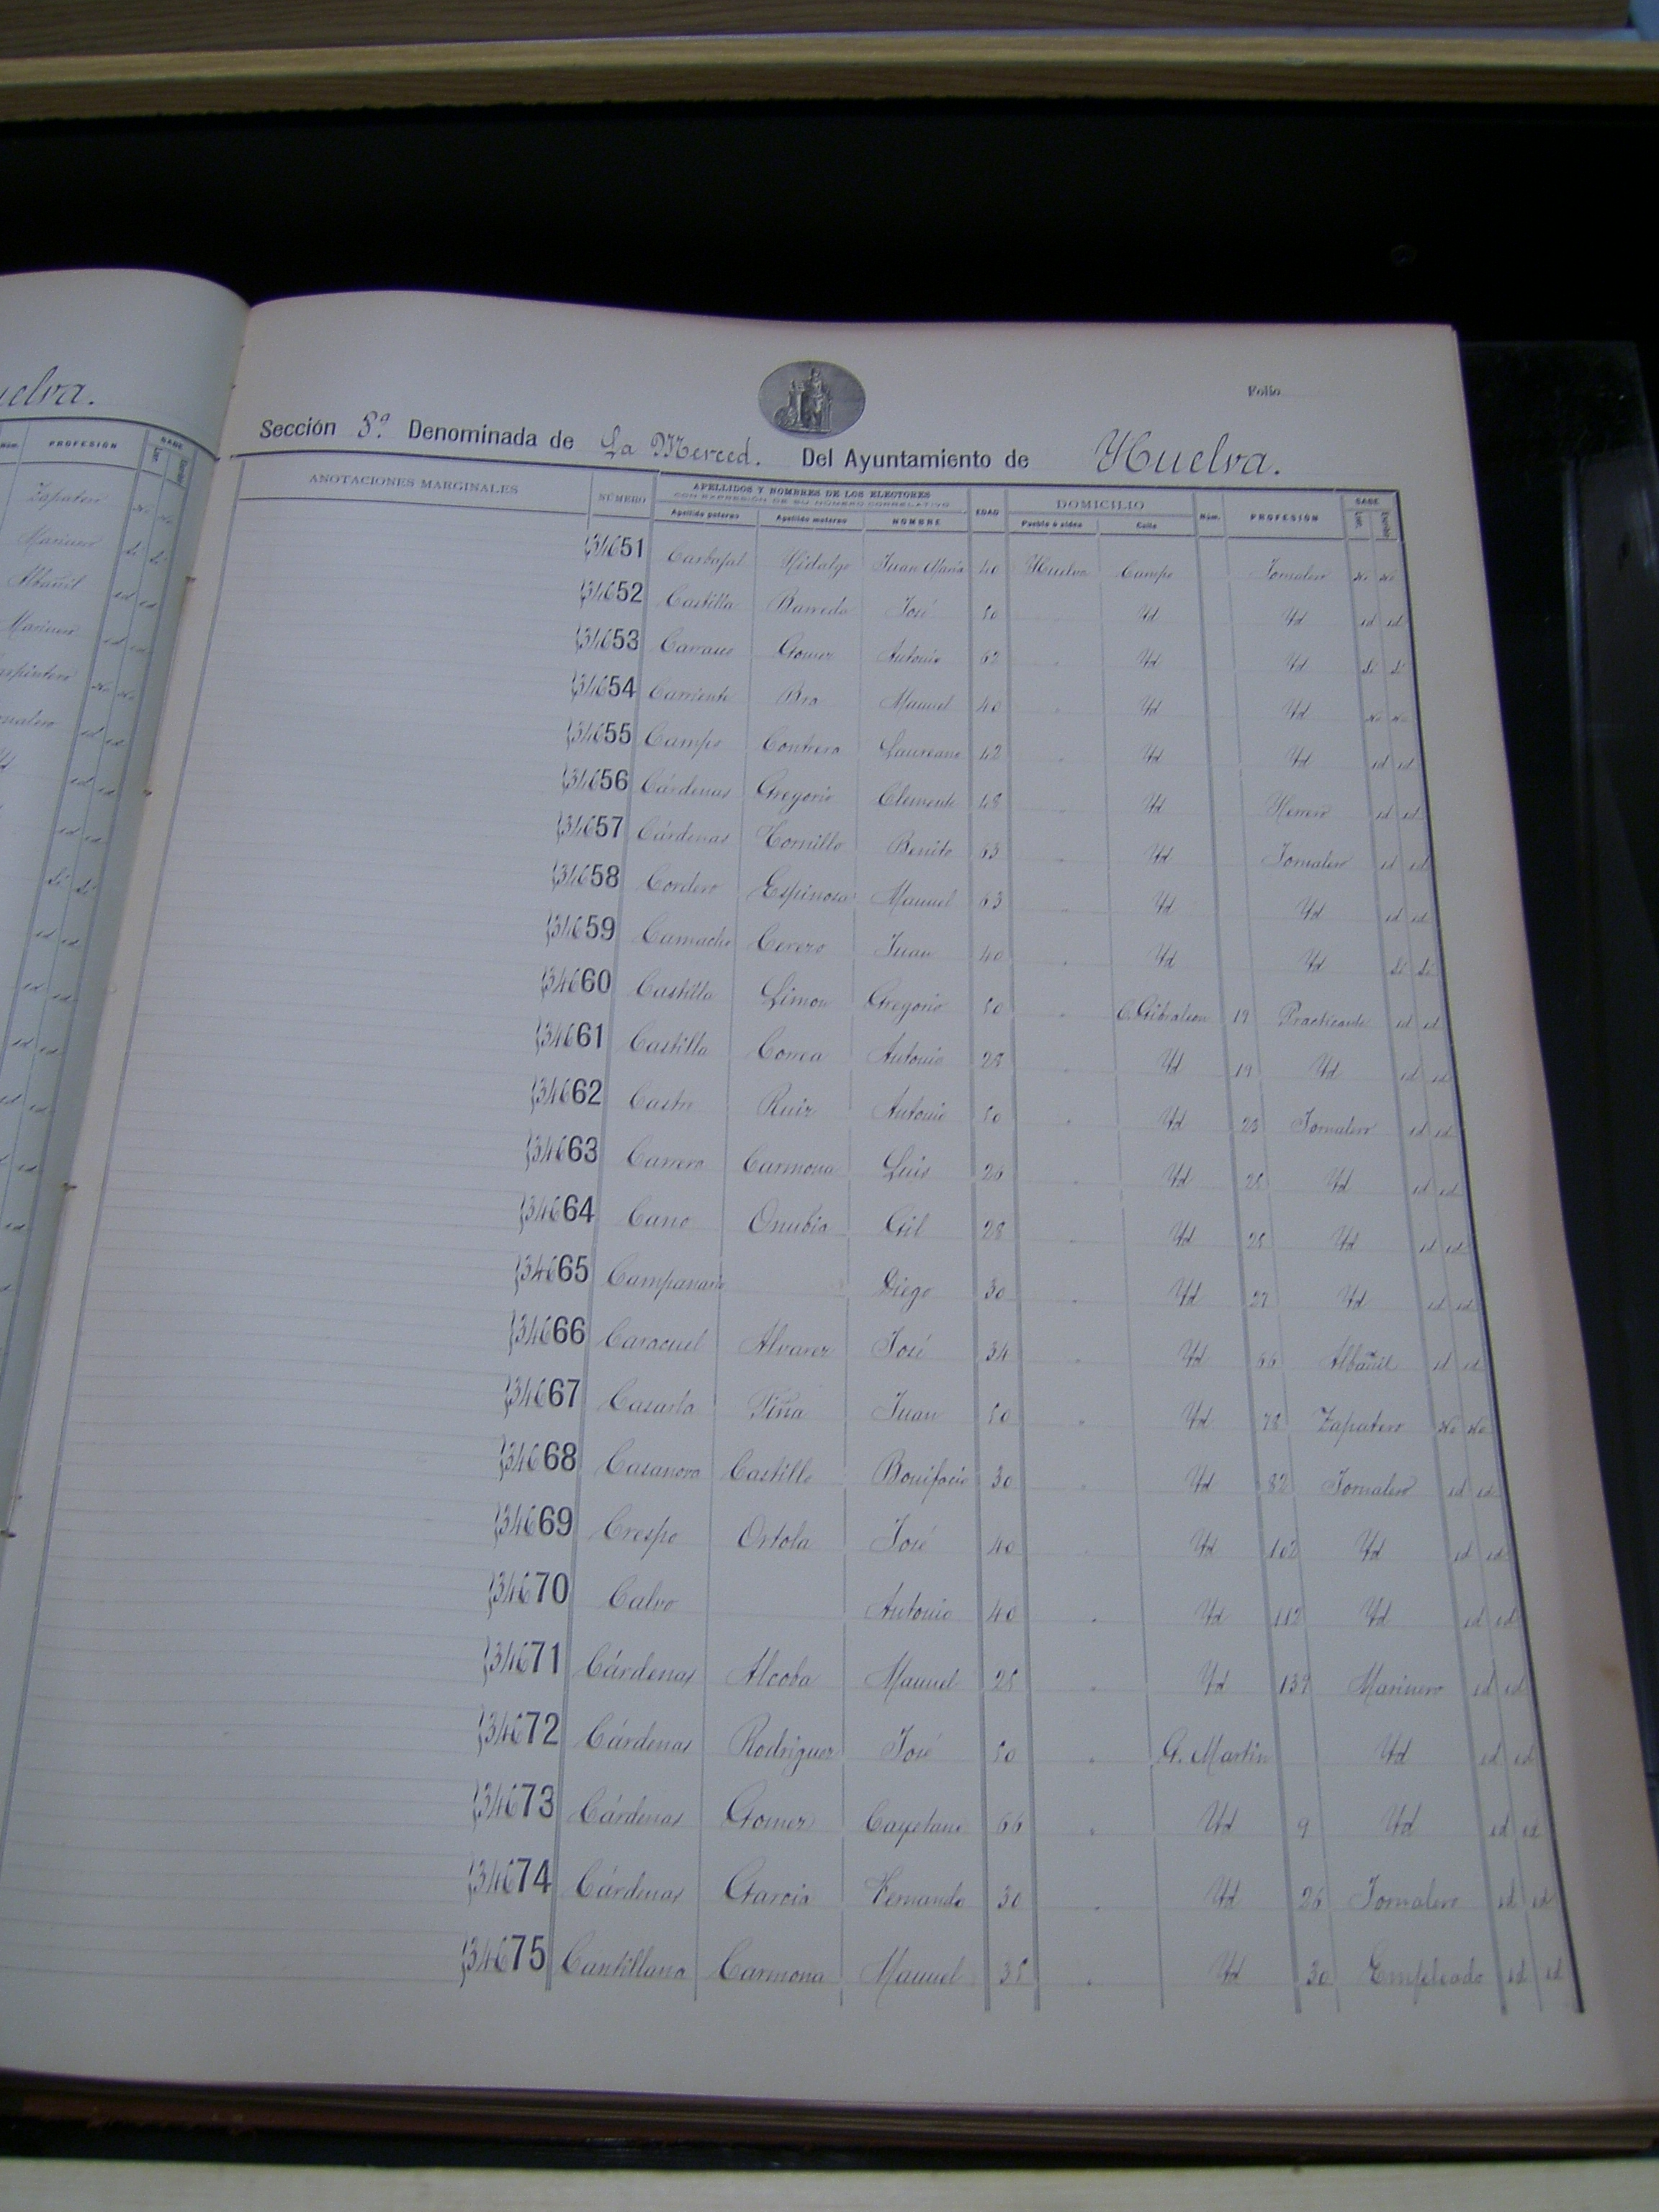 elva.
Núm. PROFESIÓN SABE
Leer Escribir
Zapatero No No
Marinero Si Si
Albañil id id
Marinero id id
No No
id id
id id
id id
Si Si
id id
id id
id id
id id
id id
id
Folio
Sección 3ª Denominada de La Merced. Del Ayuntamiento de Huelva.
ANOTACIONES MARGINALES NÚMERO APELLIDOS Y NOMBRES DE LOS ELECTORES EDAD DOMICILIO Núm. PROFESIÓN SABE
CON EXPRESIÓN DE SU NÚMERO CORRELATIVO
Apellido paterno Apellido materno NOMBRE Pueblo ó aldea Calle Leer Escribir
34651 Carbajal Hidalgo Juan María 40 Huelva Campo Jornalero No No
34652 Castilla Barreda José 50 Yd Yd id id
34653 Carrasco Gomez Antonio 62 Yd Yd Si Si
34654 Carriente Bra Manuel 40 Yd Yd No No
34655 Campo Contrera Laureano 42 Yd Yd id id
34656 Cárdenas Gregorio Clemente 48 Yd Herrero id id
34657 Cárdenas Hornillo Benito 63 Yd Jornalero id id
34658 Cordero Espinosa Manuel 63 Yd Yd id id
34659 Camacho Cerezo Juan 40 Yd Yd Si Si
34660 Castilla Limon Gregorio 50 C. Gibraleon 19 Practicante id id
34661 Castilla Correa Antonio 28 Yd 19 Yd id id
34662 Castro Ruiz Antonio 50 Yd 23 Jornalero id id
34663 Carrero Carmona Luis 26 Yd 25 Yd id id
34664 Cano Onubia Gil 28 Yd 25 Yd id id
34665 Campanario Diego 30 Yd 27 Yd id id
34666 Caracuel Alvarez José 34 Yd 66 Albañil id id
34667 Casarla Piña Juan 50 Yd 78 Zapatero No No
34668 Casanova Castillo Bonifacio 30 Yd 82 Jornalero id id
34669 Crespo Ortola José 40 Yd 102 Yd id id
34670 Calvo Antonio 40 Yd 112 Yd id id
34671 Cárdenas Alcoba Manuel 25 Yd 139 Marinero id id
34672 Cárdenas Rodriguez José 50 G. Martin Yd id id
34673 Cárdenas Gomez Cayetano 66 Yd 9 Yd id id
34674 Cárdenas Garcia Fernando 30 Yd 26 Jornalero id id
34675 Cantillana Carmona Manuel 35 Yd 30 Empleado id id